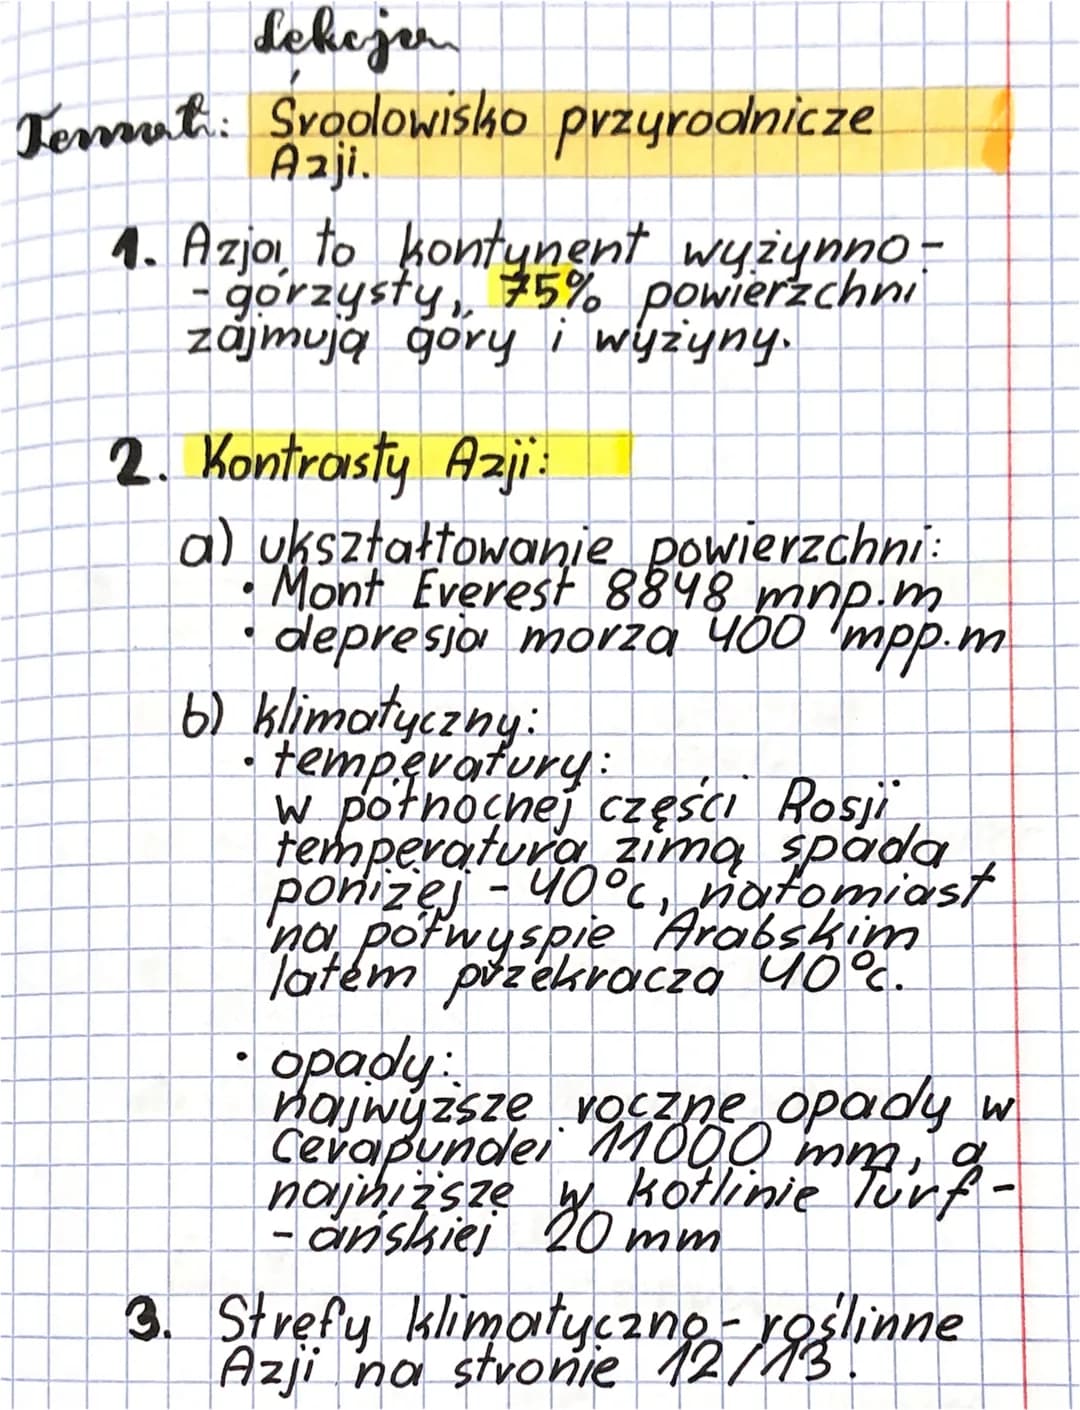 Lekcja
Temat: Środowisko przyrodnicze
Azji.
1. Azja to kontynent wyżynno-
-górzysty, 75% powierzchni
zajmują góry i wyżyny.
2. Kontrasty Azji:
a) ukształtowanie powierzchni:
• Mont Everest 8848 mnp.m
• depresja morza 400 mpp.m
b) klimatyczny:
• temperatury:
w północnej części Rosji
temperatura zimą spada
poniżej -40°c, natomiast
na półwyspie Arabskim
latem przekracza 40°c.
• opady:
najwyższe roczne opady w
Cerapundei 11000 mm, a
najniższe w kotlinie Turf-
-ańskiej 20 mm
3. Strefy klimatyczno-roślinne
Azji na stronie 12/13.